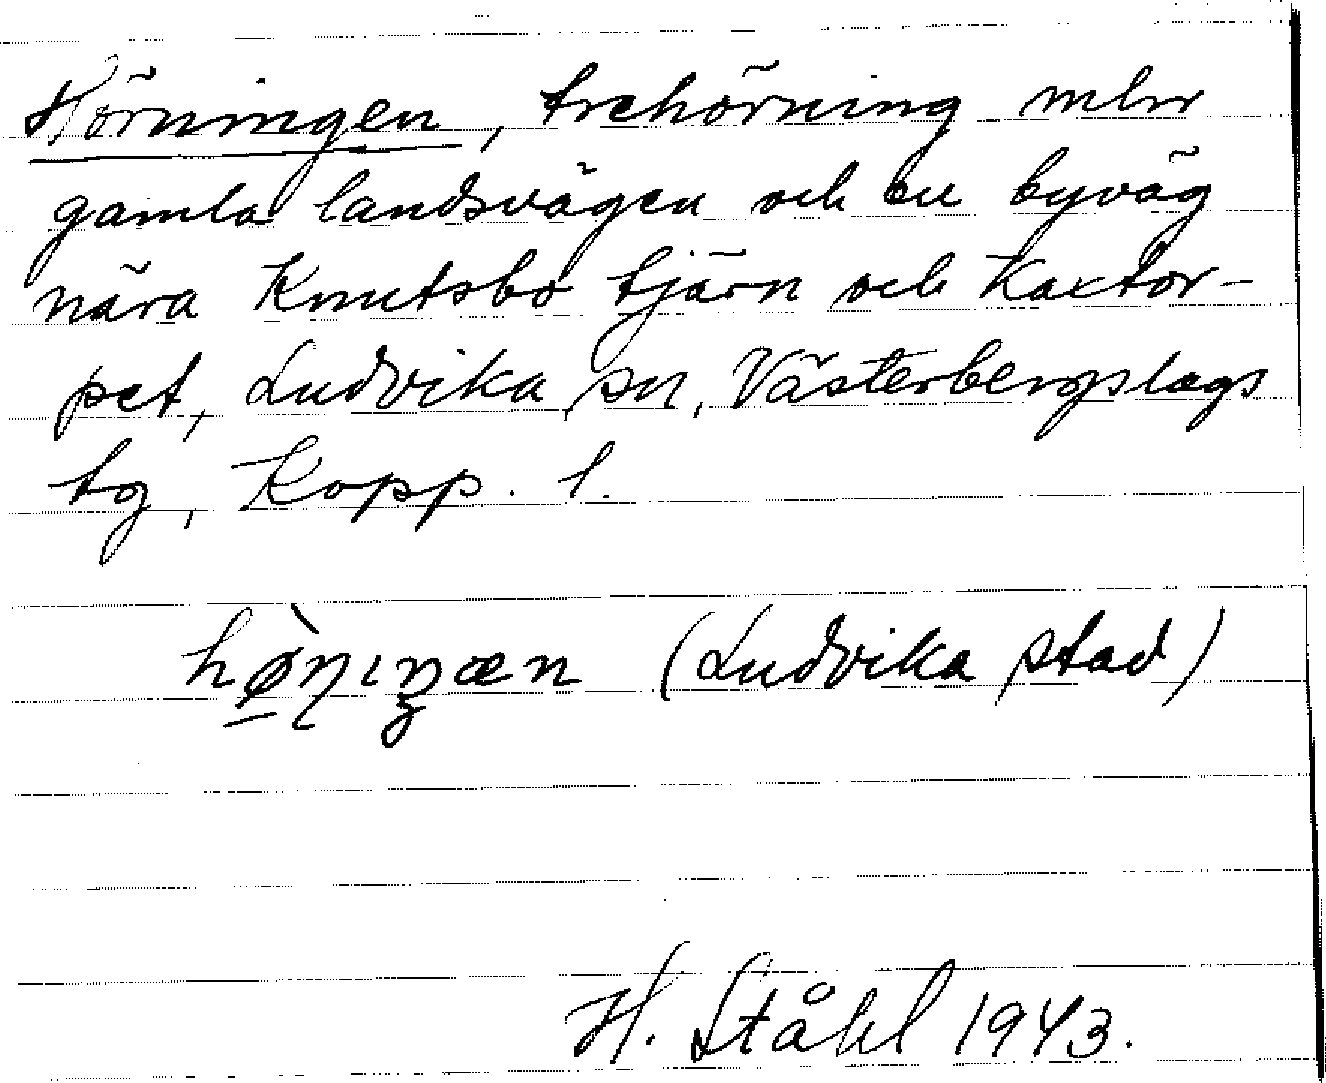 Hörningen, trehörning mlnr
gamla landsvägen och en byväg
nära Knutsbo tjärn och Kaxtor-
pet, Ludvika sn, Västerbergslags
tg, Kopp. l.
hø̠̀ɳıŋæn (Ludvika stad)
H. Ståhl 1943.